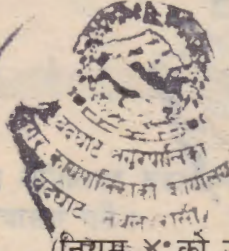 बर्दघाट नगरपालिका
नगर कार्यपालिकाको कार्यालय
बर्दघाट, नवलपरासी
(नियम ४ को